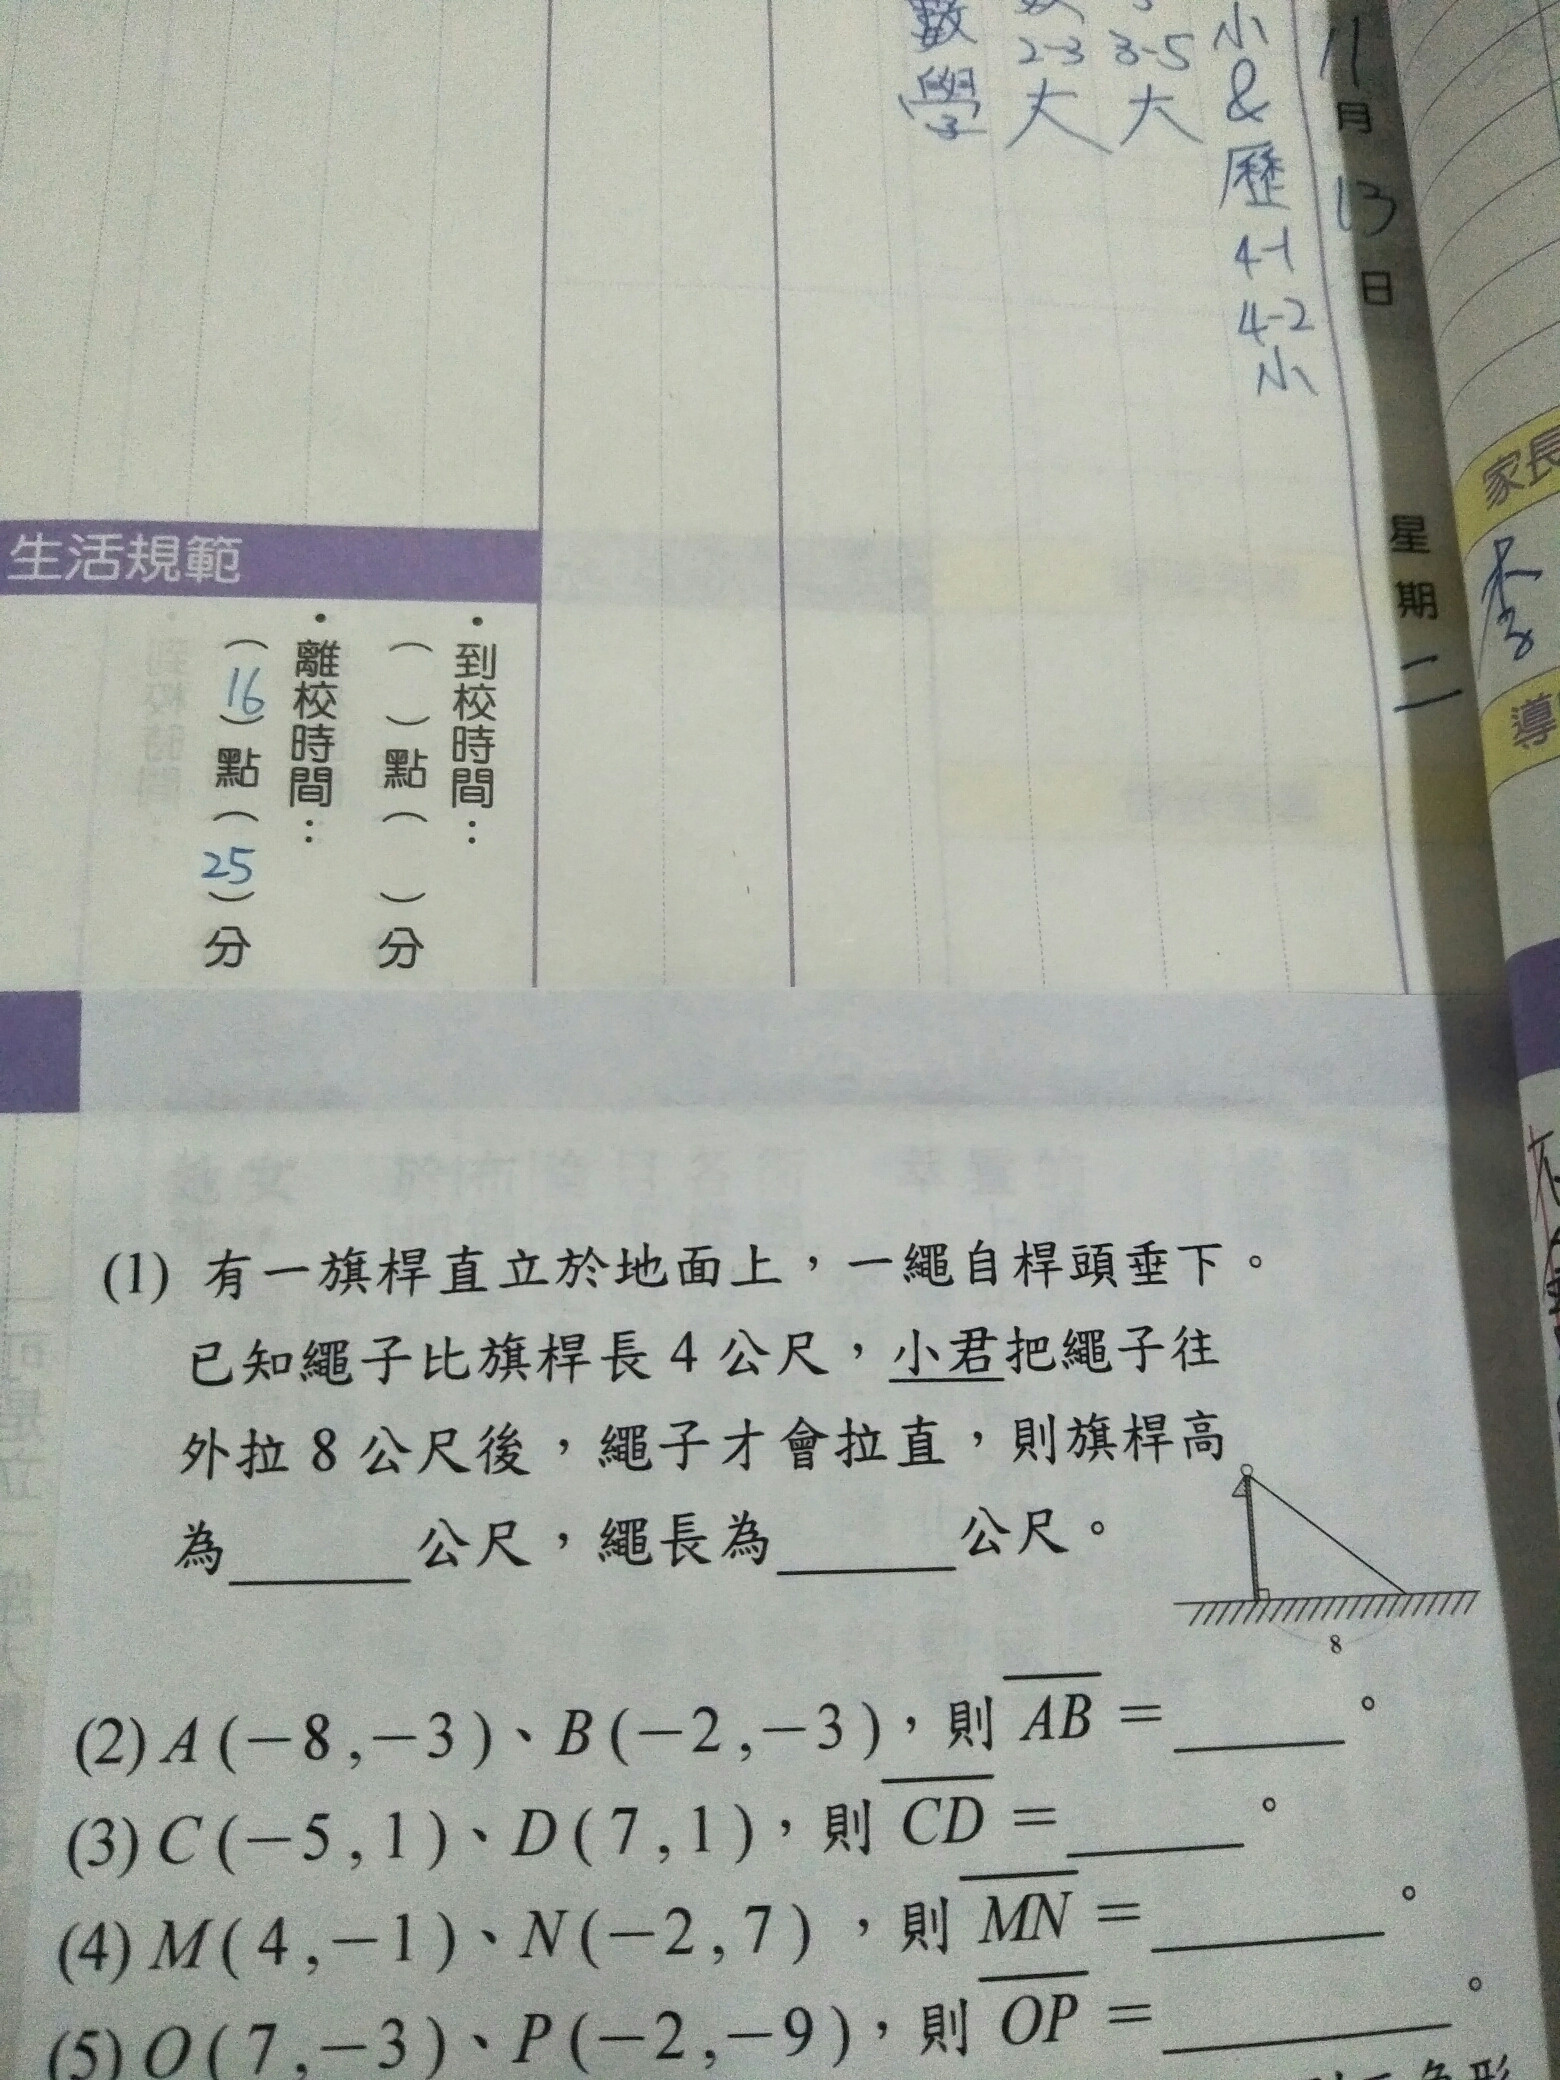 11月13日 星期二
小&歷4-1 4-2小
3-5大
2-3大
數學
家長
李
導
生活規範
・到校時間：
（ ）點（ ）分
・離校時間：
（16）點（25）分
(1) 有一旗桿直立於地面上，一繩自桿頭垂下。
已知繩子比旗桿長4公尺，小君把繩子往
外拉8公尺後，繩子才會拉直，則旗桿高
為______公尺，繩長為______公尺。
8
(2) A(−8,−3)、B(−2,−3)，則 \overline{AB} = ______。
(3) C(−5,1)、D(7,1)，則 \overline{CD} = ______。
(4) M(4,−1)、N(−2,7)，則 \overline{MN} = ______。
(5) O(7,−3)、P(−2,−9)，則 \overline{OP} = ______。
角形